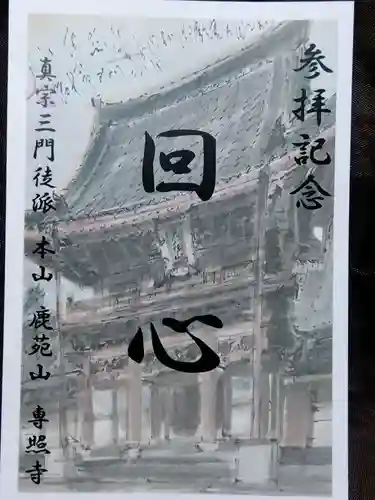 参拝記念
回心
真宗三門徒派 本山 鹿苑山 専照寺